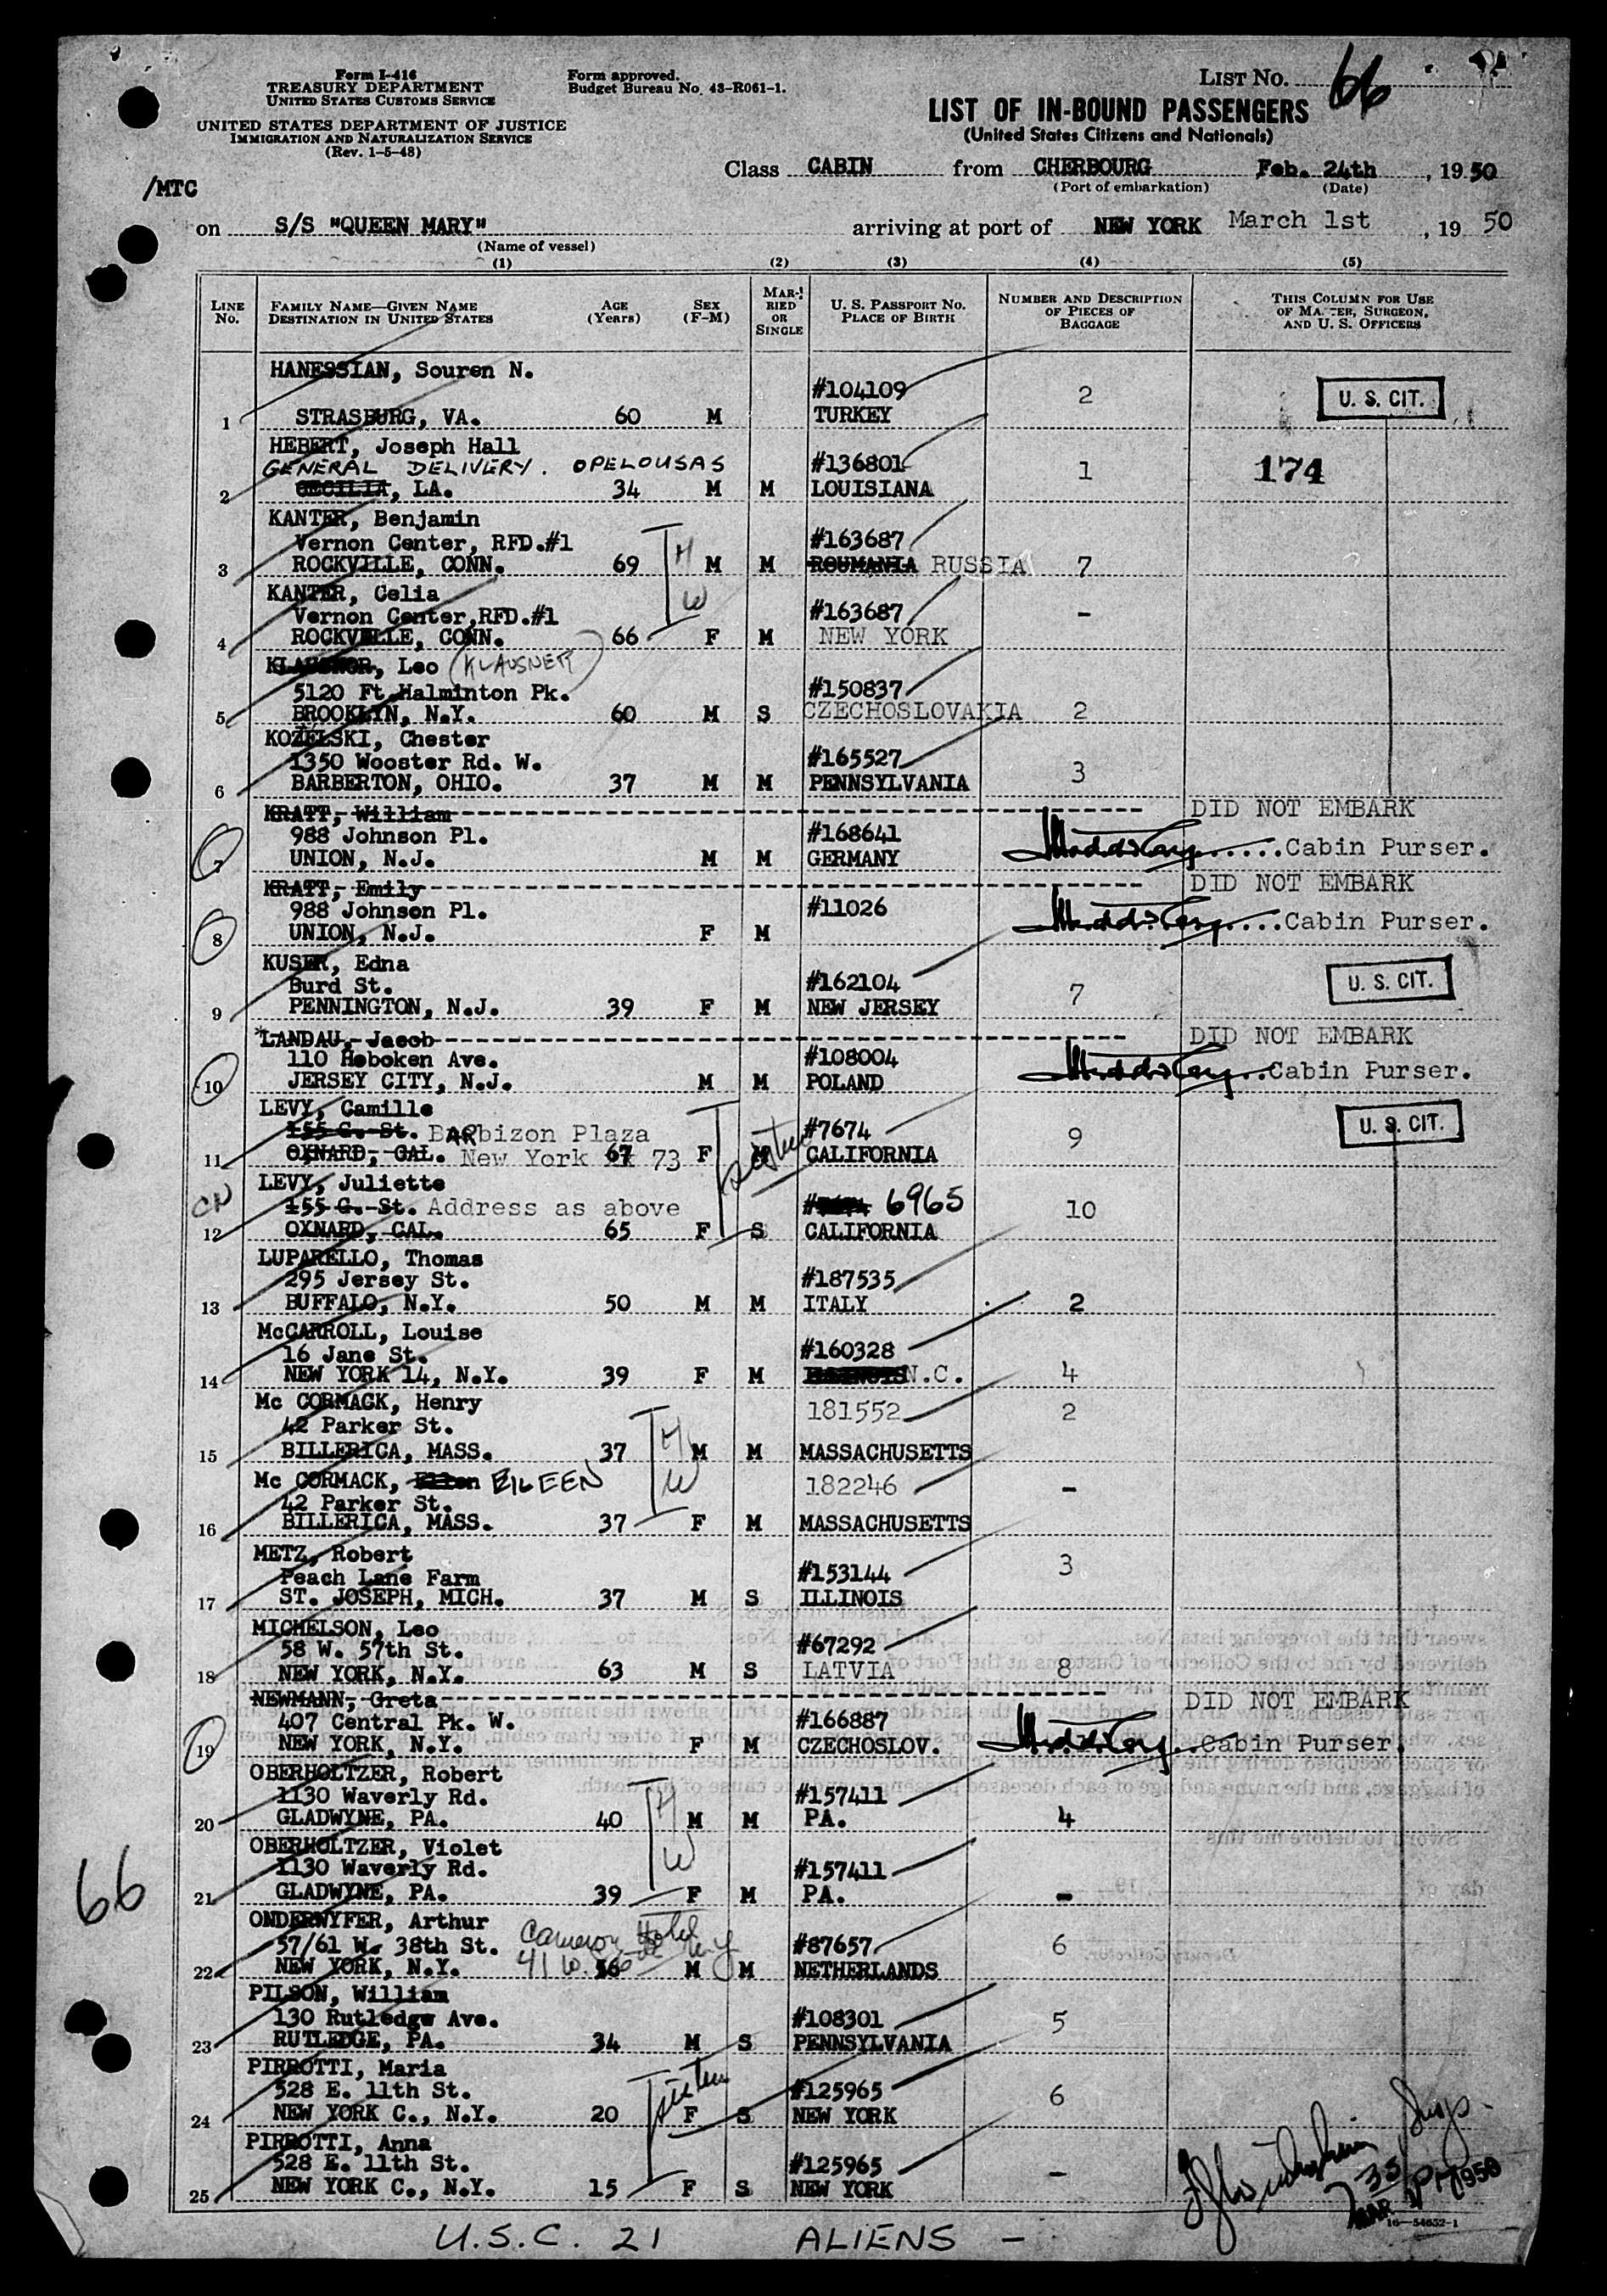 Form I-416
TREASURY DEPARTMENT
UNITED STATES CUSTOMS SERVICE
UNITED STATES DEPARTMENT OF JUSTICE
IMMIGRATION AND NATURALIZATION SERVICE
(Rev. 1-5-48)
Form approved.
Budget Bureau No. 43-R061-1.
LIST NO. 66
LIST OF IN-BOUND PASSENGERS
(United States Citizens and Nationals)
/MTC
Class CABIN from CHERBOURG Feb. 24th, 1950
(Port of embarkation) (Date)
on S/S "QUEEN MARY" arriving at port of NEW YORK March 1st, 19 50
(Name of vessel)
(1) (2) (3) (4) (5)
LINE No.
FAMILY NAME—GIVEN NAME
DESTINATION IN UNITED STATES
AGE (Years)
SEX (F-M)
MARRIED OR SINGLE
U. S. PASSPORT NO.
PLACE OF BIRTH
NUMBER AND DESCRIPTION OF PIECES OF BAGGAGE
THIS COLUMN FOR USE OF MASTER, SURGEON, AND U. S. OFFICERS
HANESSIAN, Souren N.
#104109 2 U. S. CIT.
1 STRASBURG, VA. 60 M TURKEY
HEBERT, Joseph Hall
GENERAL DELIVERY. OPELOUSAS #136801 1 174
2 CECILIA, LA. 34 M M LOUISIANA
KANTER, Benjamin
Vernon Center, RFD.#1 H #163687
3 ROCKVILLE, CONN. 69 M M ROUMANIA RUSSIA 7
KANTER, Celia W
Vernon Center,RFD.#1 #163687 -
4 ROCKVILLE, CONN. 66 F M NEW YORK
Leo (KLAUSNER)
5120 Ft Halminton Pk. #150837
5 BROOKLYN, N.Y. 60 M S CZECHOSLOVAKIA 2
KOZELSKI, Chester
1350 Wooster Rd. W. #165527
6 BARBERTON, OHIO. 37 M M PENNSYLVANIA 3
KRATT, William DID NOT EMBARK
988 Johnson Pl. #168641
7 UNION, N.J. M M GERMANY Cabin Purser.
KRATT, Emily DID NOT EMBARK
988 Johnson Pl. #11026
8 UNION, N.J. F M Cabin Purser.
KUSER, Edna
Burd St. #162104 U. S. CIT.
9 PENNINGTON, N.J. 39 F M NEW JERSEY 7
*LANDAU, Jacob DID NOT EMBARK
110 Hoboken Ave. #108004
10 JERSEY CITY, N.J. M M POLAND Cabin Purser.
LEVY, Camille U. S. CIT.
155 G. St. BARbizon Plaza #7674 9
11 OXNARD, CAL. New York 67 73 F M CALIFORNIA
sister
LEVY, Juliette
155 G. St. Address as above # 6965 10
12 OXNARD, CAL. 65 F S CALIFORNIA
LUPARELLO, Thomas
295 Jersey St. #187535
13 BUFFALO, N.Y. 50 M M ITALY 2
McCARROLL, Louise
16 Jane St. #160328
14 NEW YORK 14, N.Y. 39 F M ILLINOIS N.C. 4
Mc CORMACK, Henry 181552 2
42 Parker St. H
15 BILLERICA, MASS. 37 M M MASSACHUSETTS
Mc CORMACK, Ellen EILEEN W 182246 -
42 Parker St.
16 BILLERICA, MASS. 37 F M MASSACHUSETTS
METZ, Robert
Peach Lane Farm #153144 3
17 ST. JOSEPH, MICH. 37 M S ILLINOIS
MICHELSON, Leo
58 W. 57th St. #67292
18 NEW YORK, N.Y. 63 M S LATVIA 8
NEWMANN, Greta DID NOT EMBARK
407 Central Pk. W. #166887
19 NEW YORK, N.Y. F M CZECHOSLOV. Cabin Purser.
OBERHOLTZER, Robert
1130 Waverly Rd. H #157411
20 GLADWYNE, PA. 40 M M PA. 4
OBERHOLTZER, Violet W
1130 Waverly Rd. #157411
21 GLADWYNE, PA. 39 F M PA. -
ONDERWYFER, Arthur Cameron Hotel
57/61 W. 38th St. 41 W. #87657 6
22 NEW YORK, N.Y. 56 M M NETHERLANDS
PILSON, William
130 Rutledge Ave. #108301 5
23 RUTLEDGE, PA. 34 M S PENNSYLVANIA
PIRROTTI, Maria sister
528 E. 11th St. #125965 6
24 NEW YORK C., N.Y. 20 F S NEW YORK
PIRROTTI, Anna
528 E. 11th St. #125965 -
25 NEW YORK C., N.Y. 15 F S NEW YORK
66
MAR 1950
16—54652-1
U.S.C. 21 ALIENS -